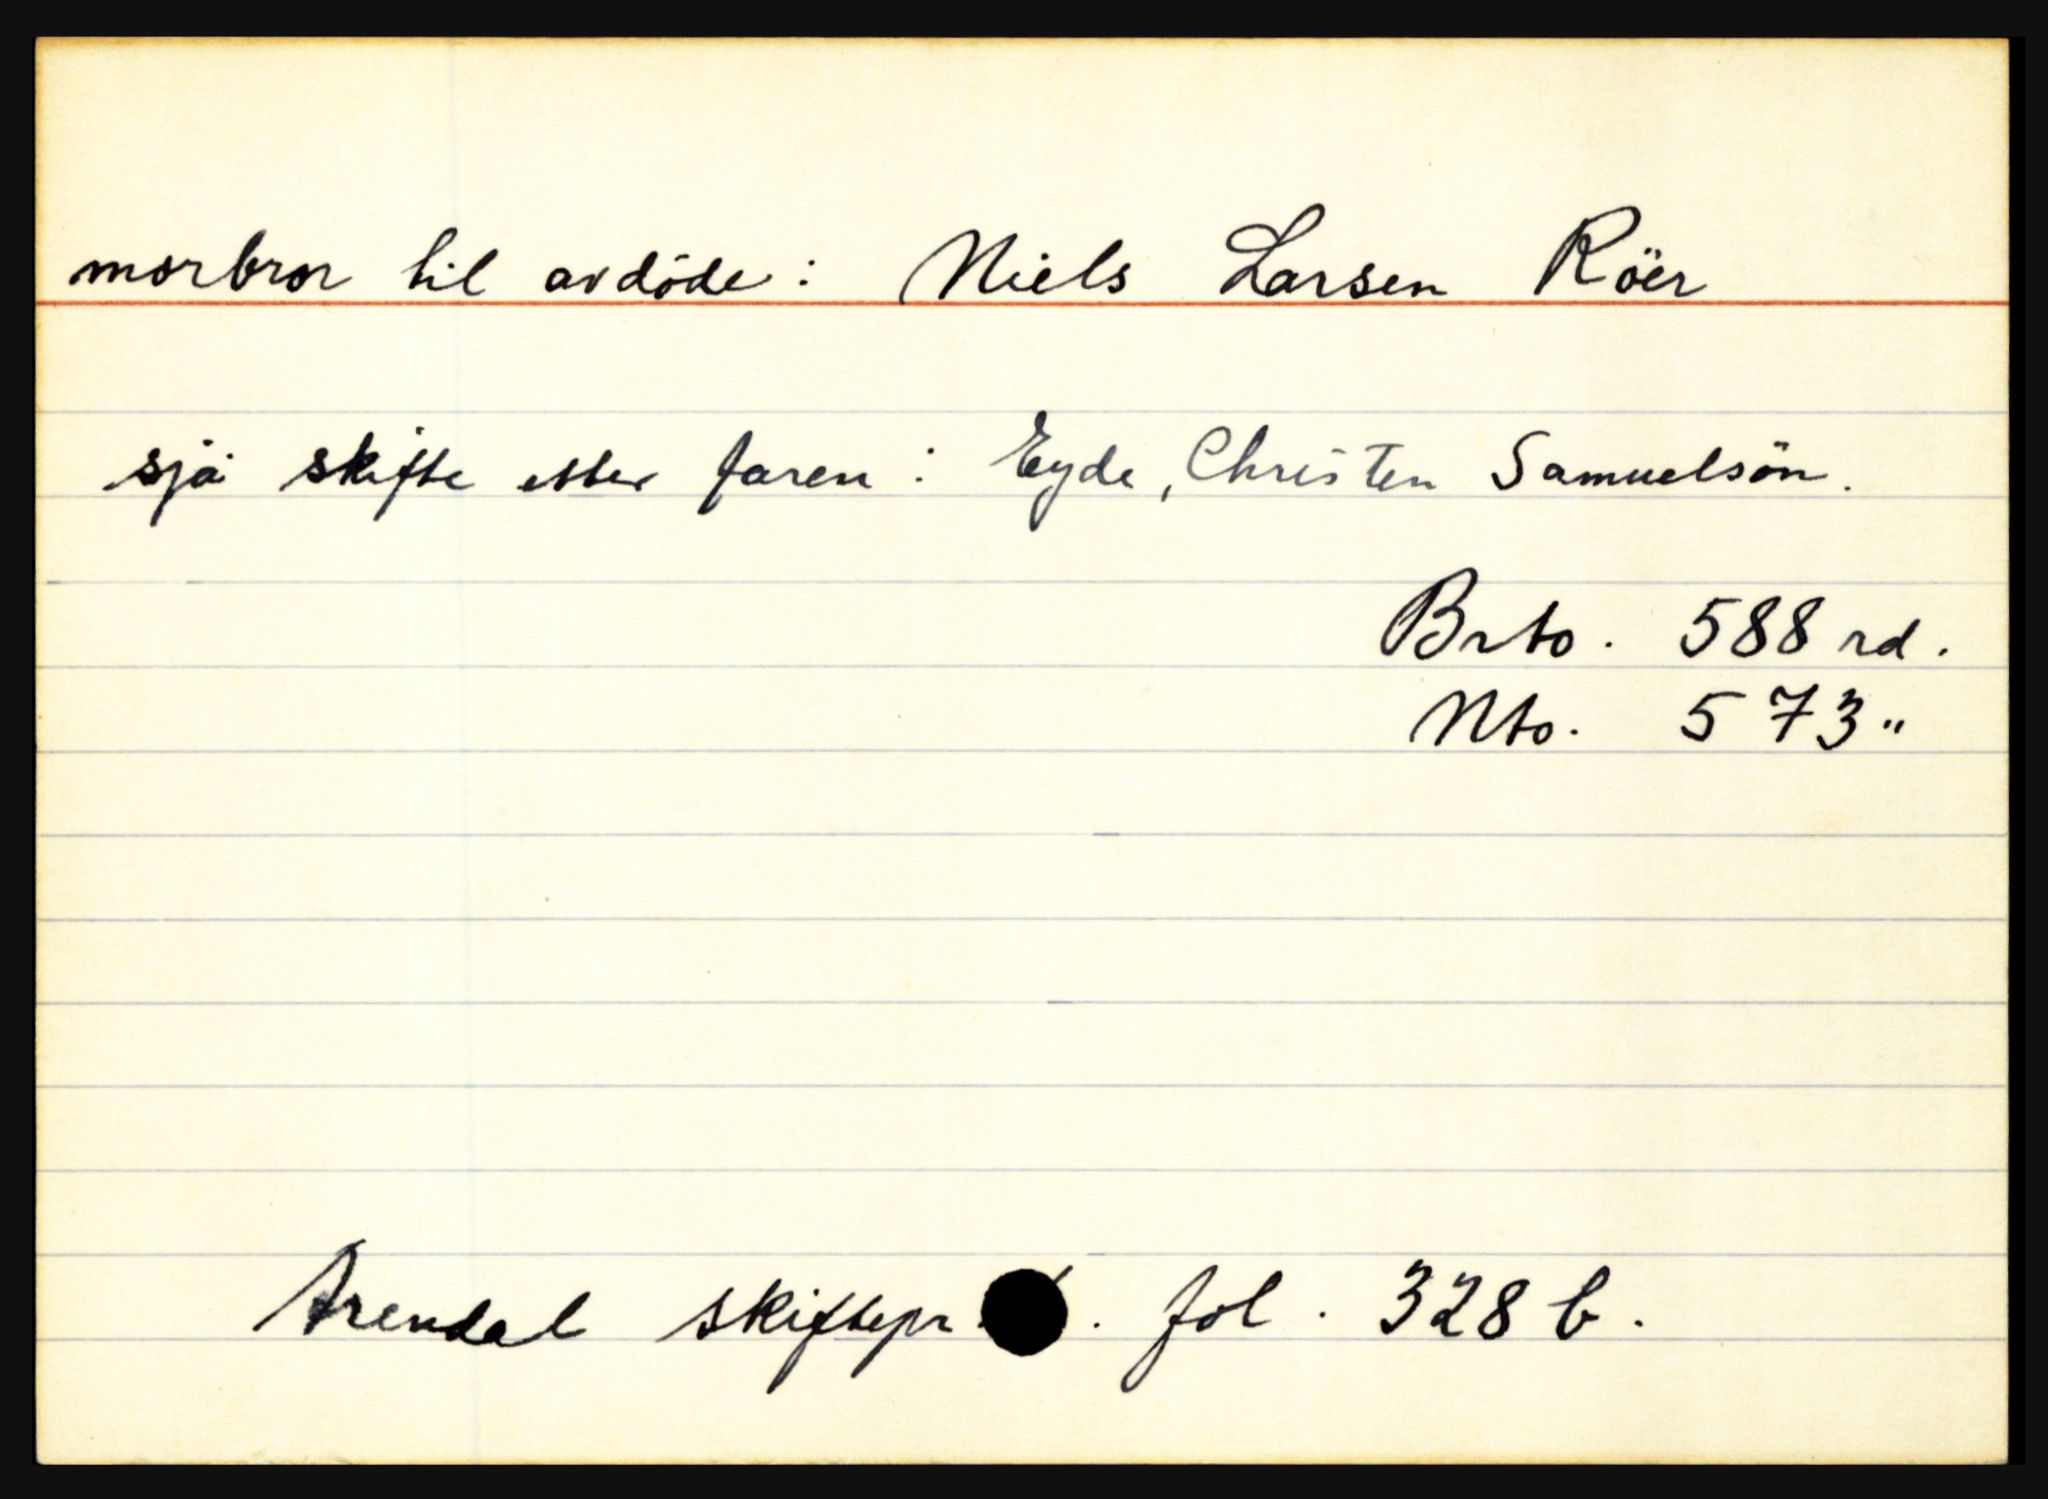 morbror til avdöde: Niels Larsen Röer
sjå skifte etter faren: Eyde, Christen Samuelsön.
Brto. 588 rd.
Nto. 573 "
Arendal skiftepr. fol. 328 b.